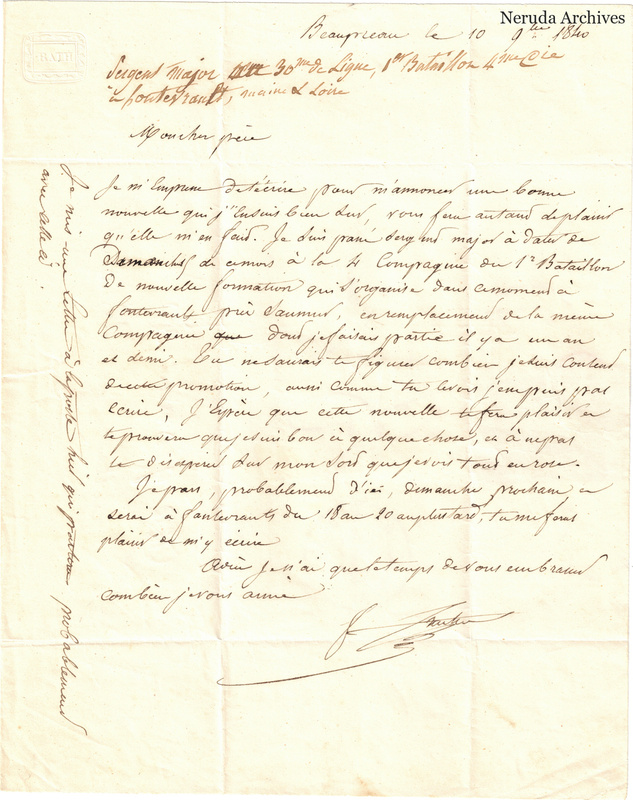 Neruda Archives
BATH
Beaupreau le 10 9bre 1840
Sergent Major au 30me de Ligne, 1er Bataillon 4me Cie
à fontevrault, maine & Loire
Moncher père
Je m'Empresse det'écrire pour m'annoncer une bonne
nouvelle qui j'Ensuis bien Sur, vous fera autand deplaisir
qu'elle m'en faid. Je Suis passé Sergend major à dater de
Dimanche de cemois à la 4 Compagnie du 1er Bataillon
De nouvelle formation qui S'organise dans cemomend à
fontevrault près Saumur, enremplacemend de la même
Compagnie que dond jefaisais partie il ya un an
et demi. Tu nesaurais te figurer combien jesuis Contend
decette promotion, aussi comme tu levois
écrire, J'Espère que cette nouvelle tefera plaisir et
teprouvera quejesuis bon à quelque chose, et à nepas
te désespérer Sur mon Sord quejevois toud enrose.
Jepars, probablemend d'ici, dimanche prochain et
serai à fontevraults du 18 au 20 auplustard, tu meferas
plaisir de m'y écrire
Adieu Jen'ai queletemps devous embrasser
combien jevous aime
Je mis une lettre à laposte hier qui partira probablemend
avec celle ci.